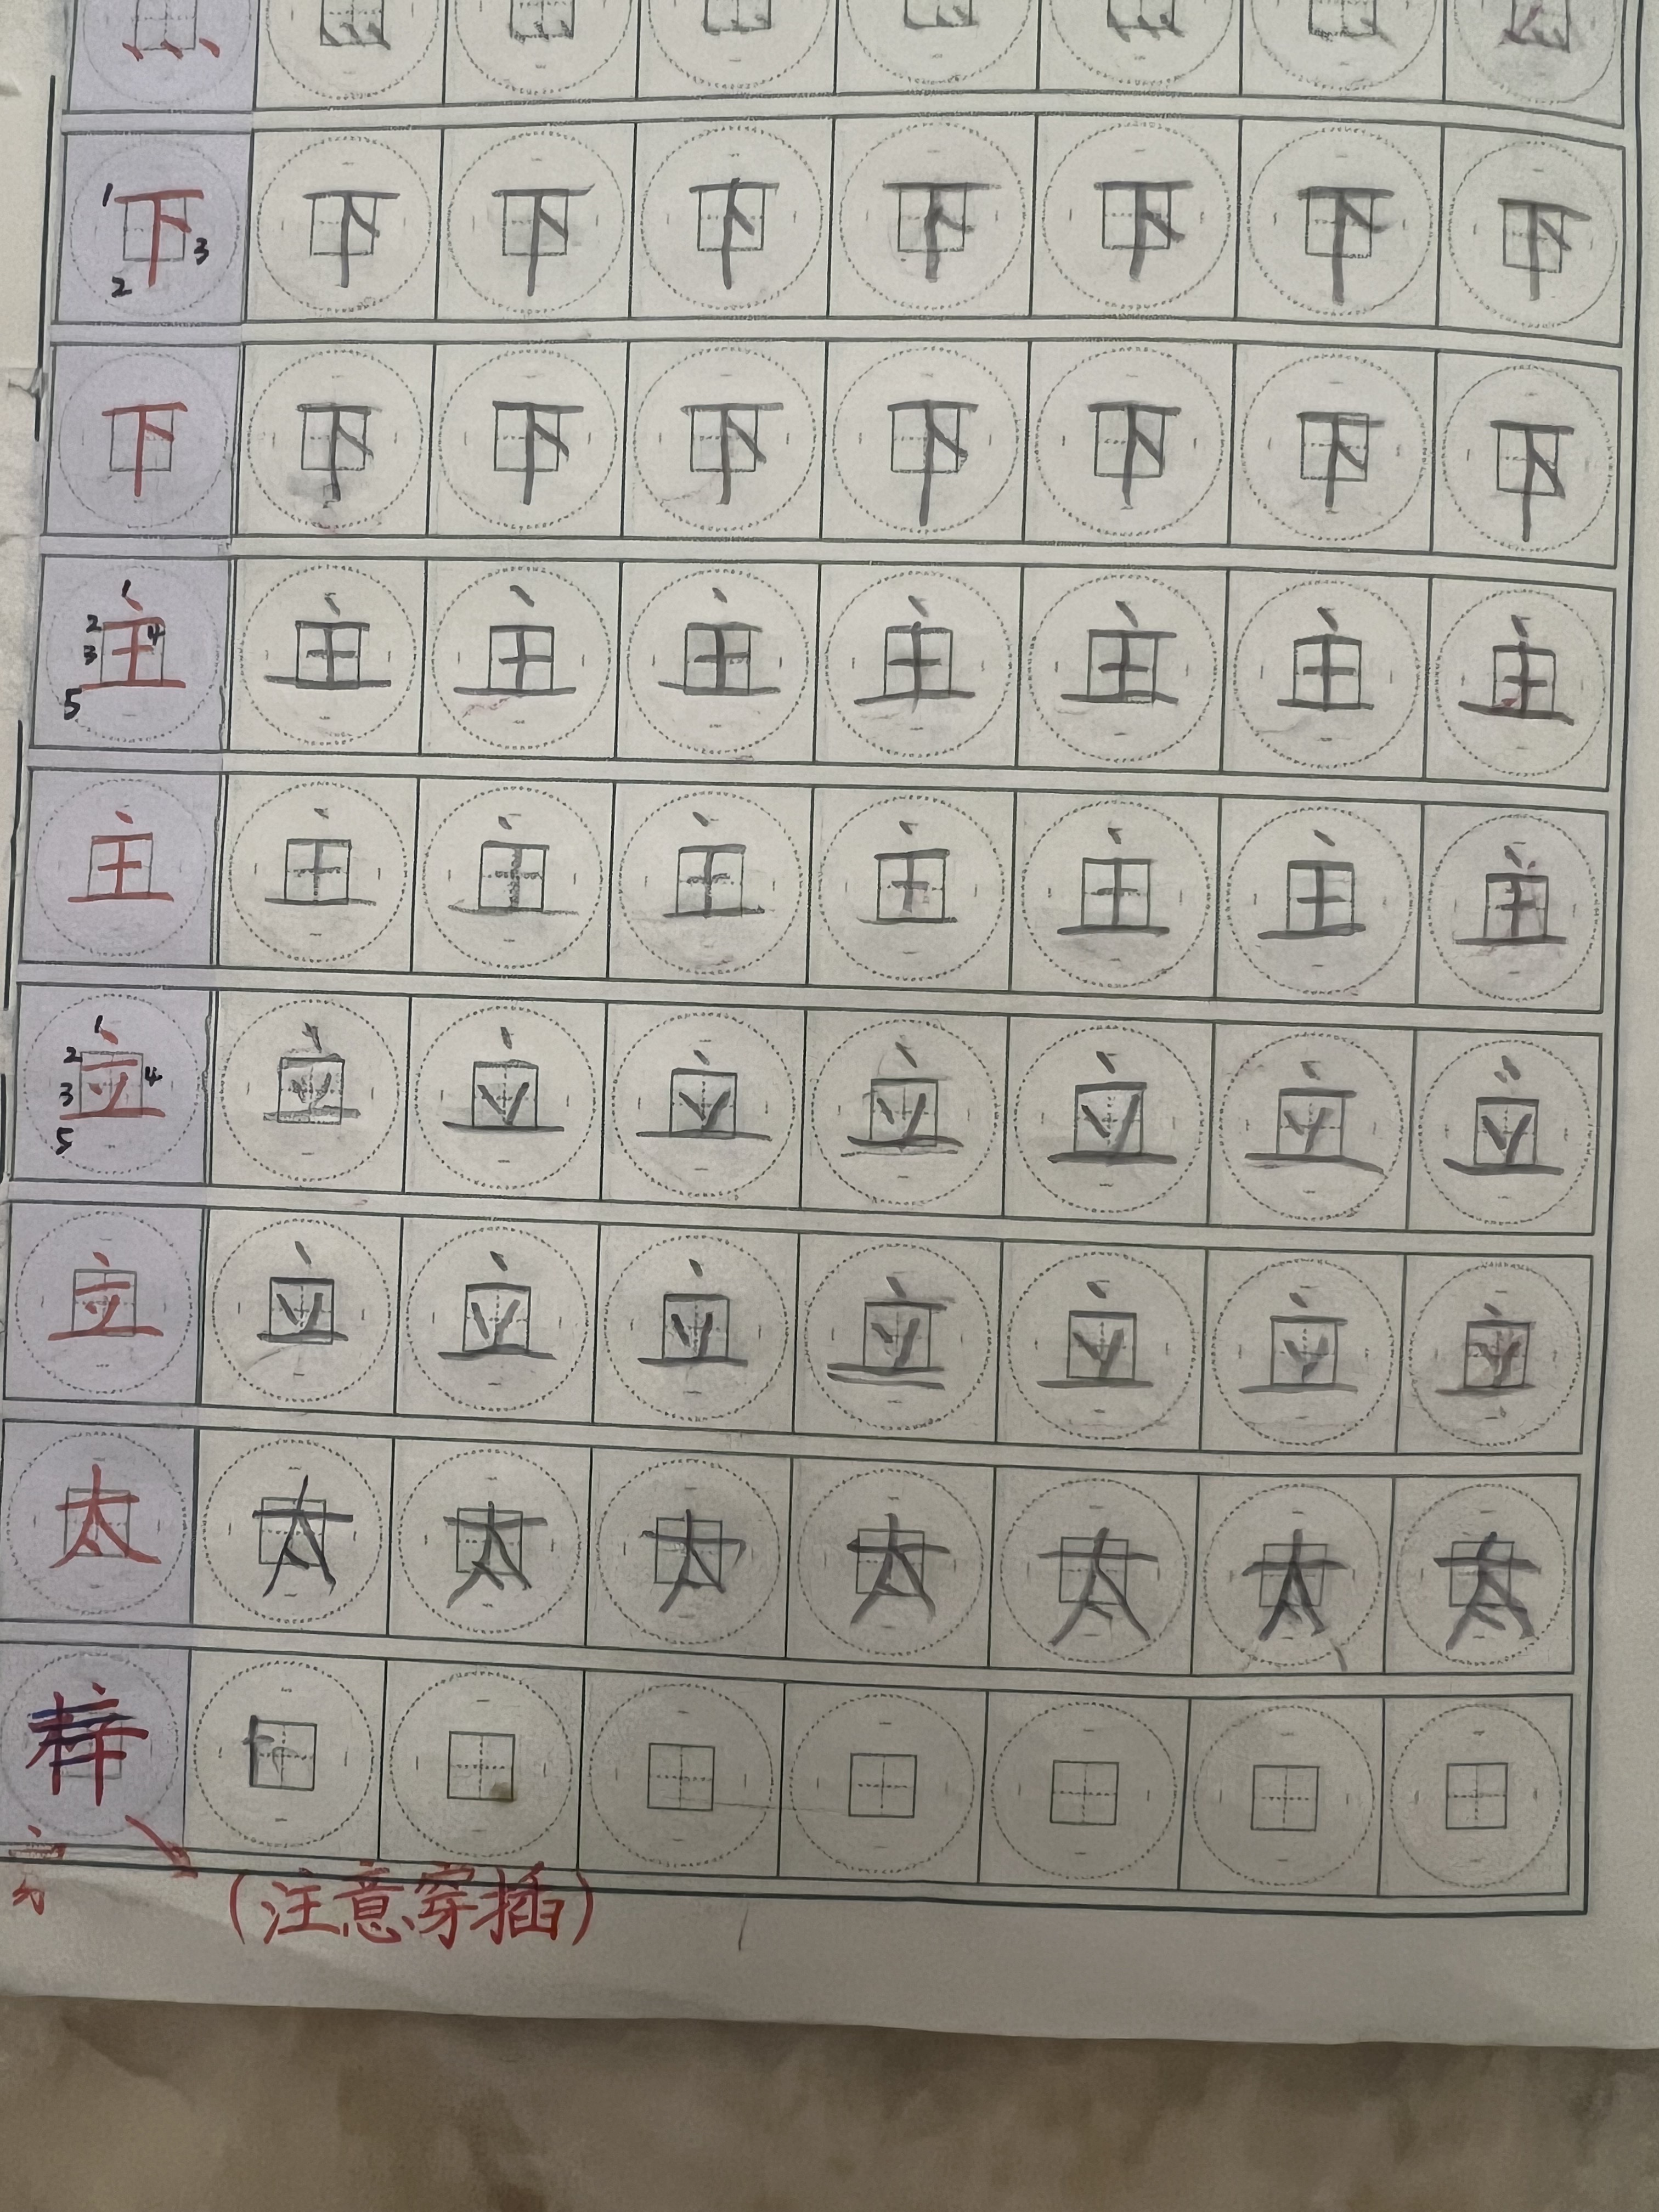 1 2 3 下 下 下 下 下 下 下 下
下 下 下 下 下 下 下 下
1 2 3 4 5 主 主 主 主 主 主 主 主
主 主 主 主 主 主 主 主
1 2 3 4 5 立 立 立 立 立 立 立 立
立 立 立 立 立 立 立 立
太 太 太 太 太 太 太 太
梓
(注意穿插)